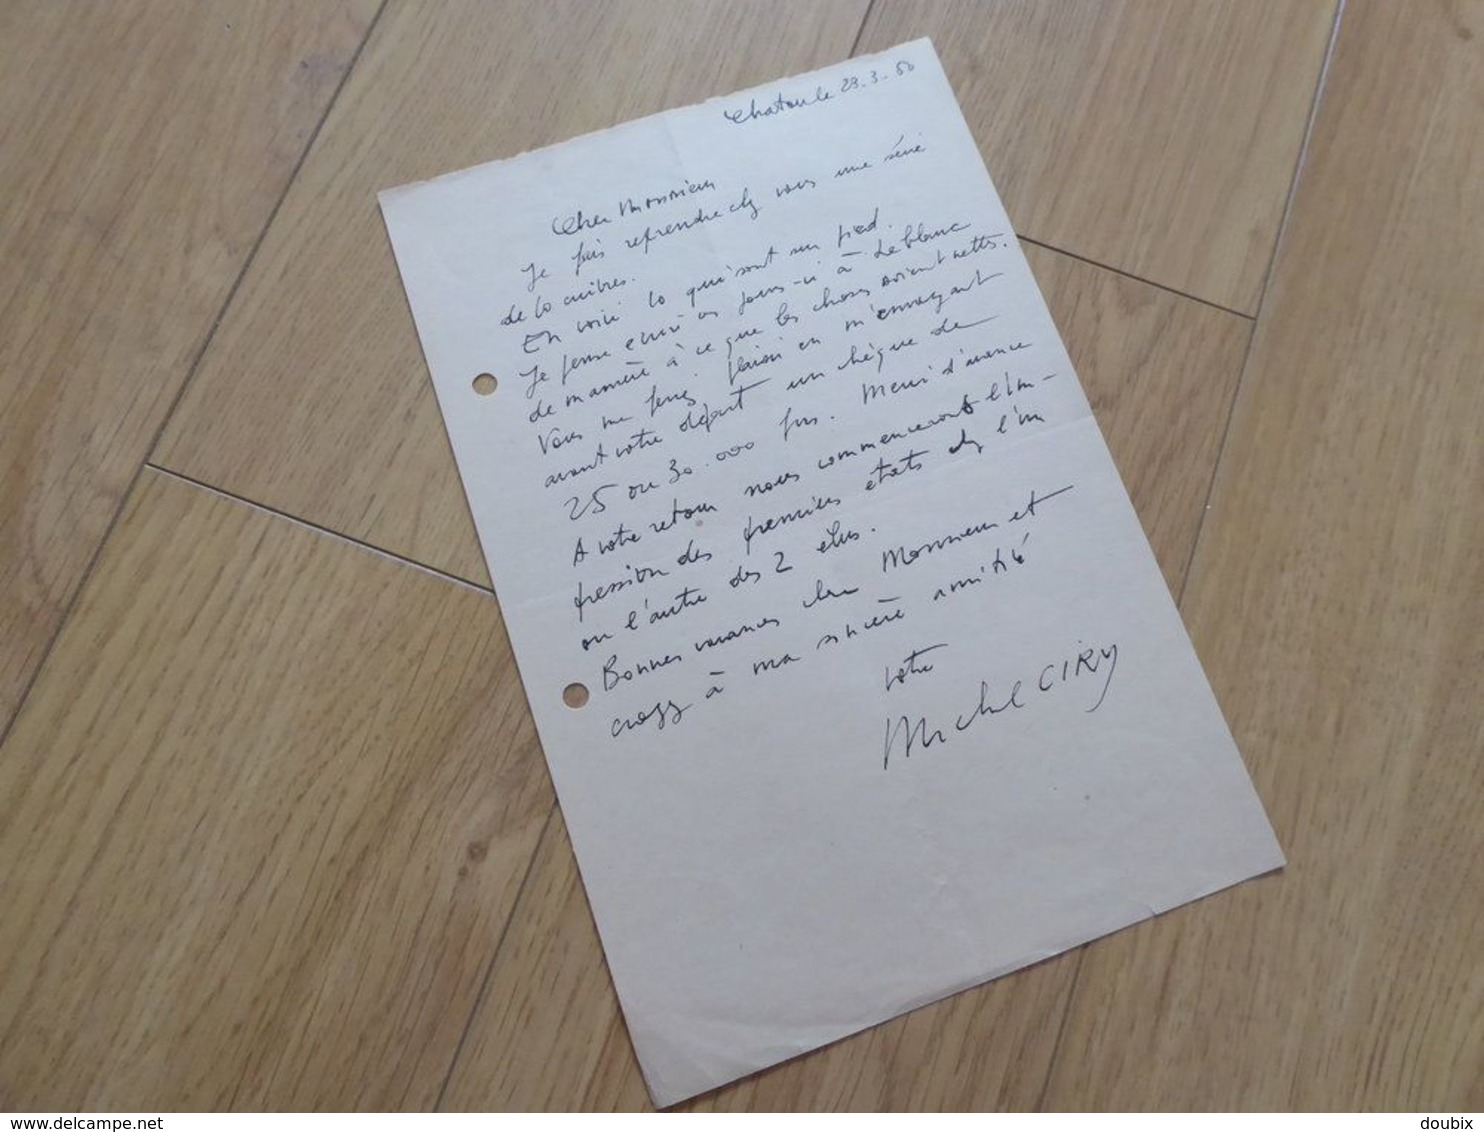 Chatou le 29.3.50
Cher Monsieur
Je puis reprendre chez vous une série
de 10 cuivres.
En voici 10 qui sont sur pied.
Je pense ces jours-ci à Leblanc
de manière à ce que les choses soient nettes.
Vous me ferez plaisir en m'envoyant
avant votre départ un chèque de
25 ou 30.000 frs. Merci d'avance
A votre retour nous commencerons l'im-
pression des premiers états chez l'un
ou l'autre des 2 élus.
Bonnes vacances cher Monsieur et
croyez à ma sincère amitié
votre
Michel CIRY
delcampe.net
doubix